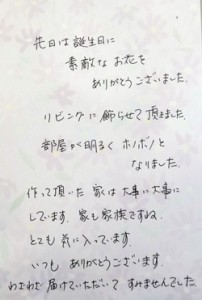 先日は誕生日に
素敵なお花を
ありがとうございました.
リビングに飾らせて頂きました.
部屋が明るくホノボノと
なりました.
作って頂いた家は大事に大事に
しています. 家も家族ですね.
とても気に入っています.
いつもありがとうございます.
わざわざ届けていただいてすみませんでした.